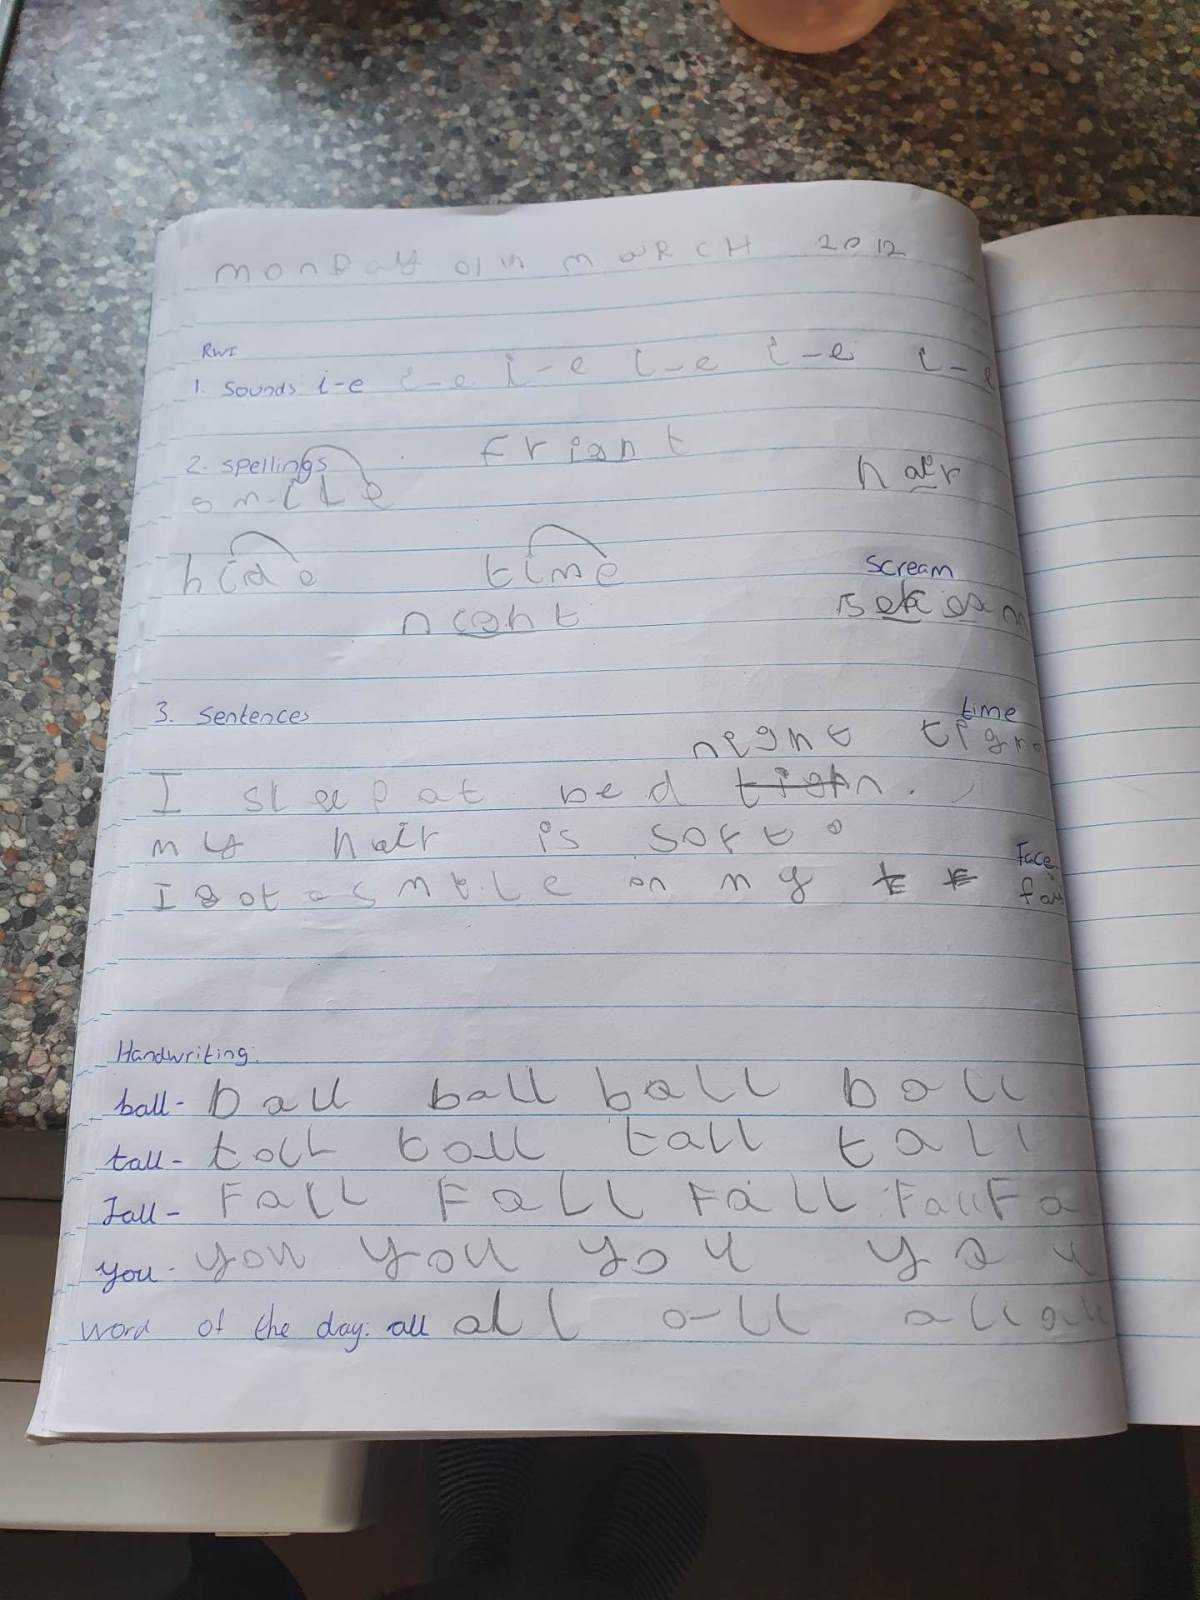 MonDay 01 MaRCH 2012
RWI
1. Sounds i-e i-e i-e i-e i-e i-e
2. Spellings Fright
smile hair
hide time scream
night
3. Sentences time
night
I sleep at bed
my hair is soft
Face
I got a smile on my
Handwriting.
ball- ball ball ball ball
tall- tall tall tall tall
Fall- Fall Fall Fall Fall Fa
you- you you you you
word of the day: all all all all all